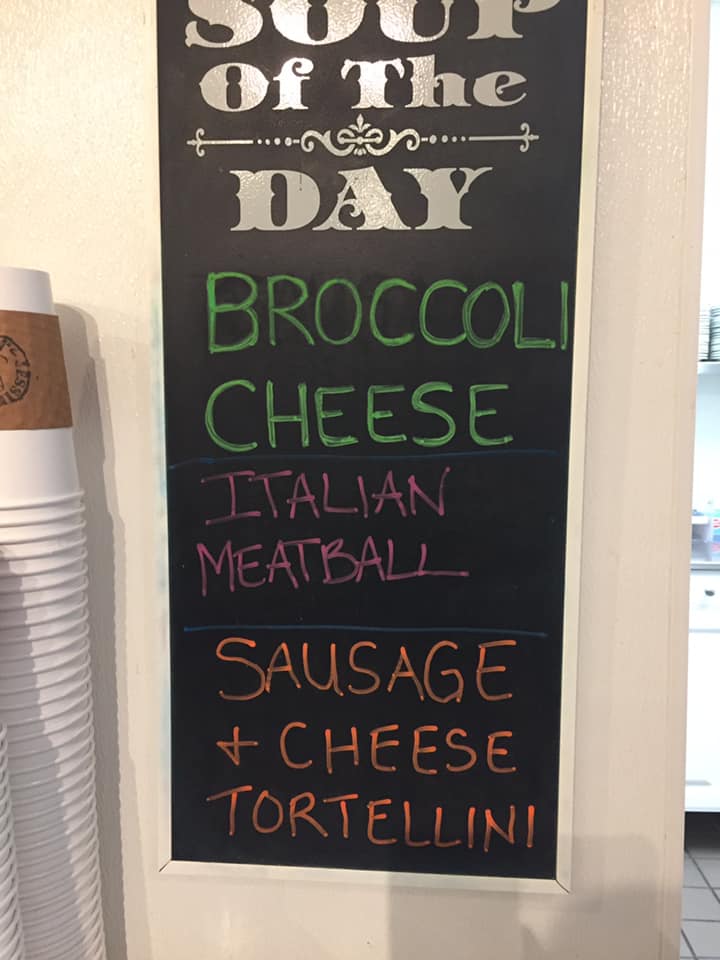 SOUP
Of The
DAY
BROCCOLI
CHEESE
ITALIAN
MEATBALL
SAUSAGE
+ CHEESE
TORTELLINI